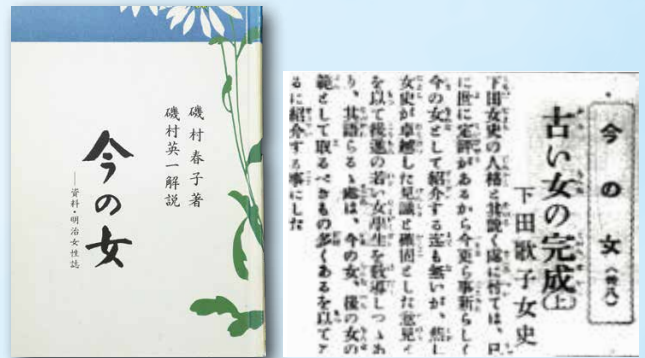 磯村春子著
磯村英一解説
今の女
――資料・明治女性誌
今の女(卅八)
古い女の完成(上)
下田歌子女史
下田女史の人格と其説く處に付ては、已
に世に定評があるから今更ら事新らしく
今の女として紹介する迄も無いが、然し
女史が卓越した見識と確固とした意見と
を以て後進の若い女學生を敎導しつゝあ
り、其語らるゝ處は、今の女、後の女の
範として取るべきもの多くあるを以て
るに紹介する事にした